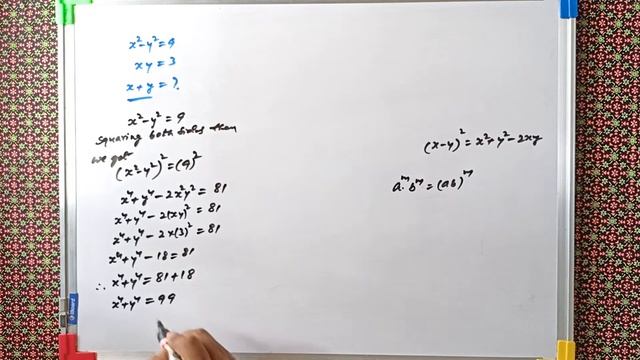 x²-y²=9
xy=3
x+y=?
x²-y²=9
Squaring both sides then
we get
(x²-y²)²=(9)²
x⁴+y⁴-2x²y²=81
x⁴+y⁴-2(xy)²=81
x⁴+y⁴-2×(3)²=81
x⁴+y⁴-18=81
∴ x⁴+y⁴=81+18
x⁴+y⁴=99
(x-y)²=x²+y²-2xy
aᵐ.bᵐ=(ab)ᵐ